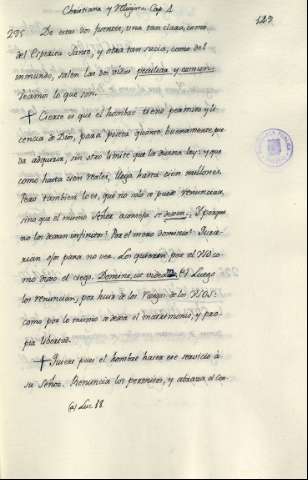 Christiana y Religiosa Cap. 1
149.
295 De estas dos fuentes, una tan clara, como
del Espiritu Santo, y otra tan sucia, como del
inmundo, salen las dos vidas peculiar y comun.
Veamos lo que son.
Cierto es que el hombre tiene permiso y li-
cencia de Dios, para poseer quanto buenamente pue
da adquirir, sin otro limite que la divina ley: y que
como hasta cien reales, llega hasta cien millones.
Pero tambien lo es, que no solo se puede renunciar,
sino que el mismo Señor aconseja se
no los desean infinitos? Por el mero dominio?
rian ojo para no ver. Lo quieren por el Uso,
como dixo el ciego. Domine, ut videam. (a) Luego
los renuncian, por huir de los riesgos de los USOS:
como por lo mismo se dexa el matrimonio, y pro
pia libertad.
Quiere pues el hombre hacer ese servicio a
su Señor. Renuncia los permisos, y abraza el con-
(a) Luc. 18.